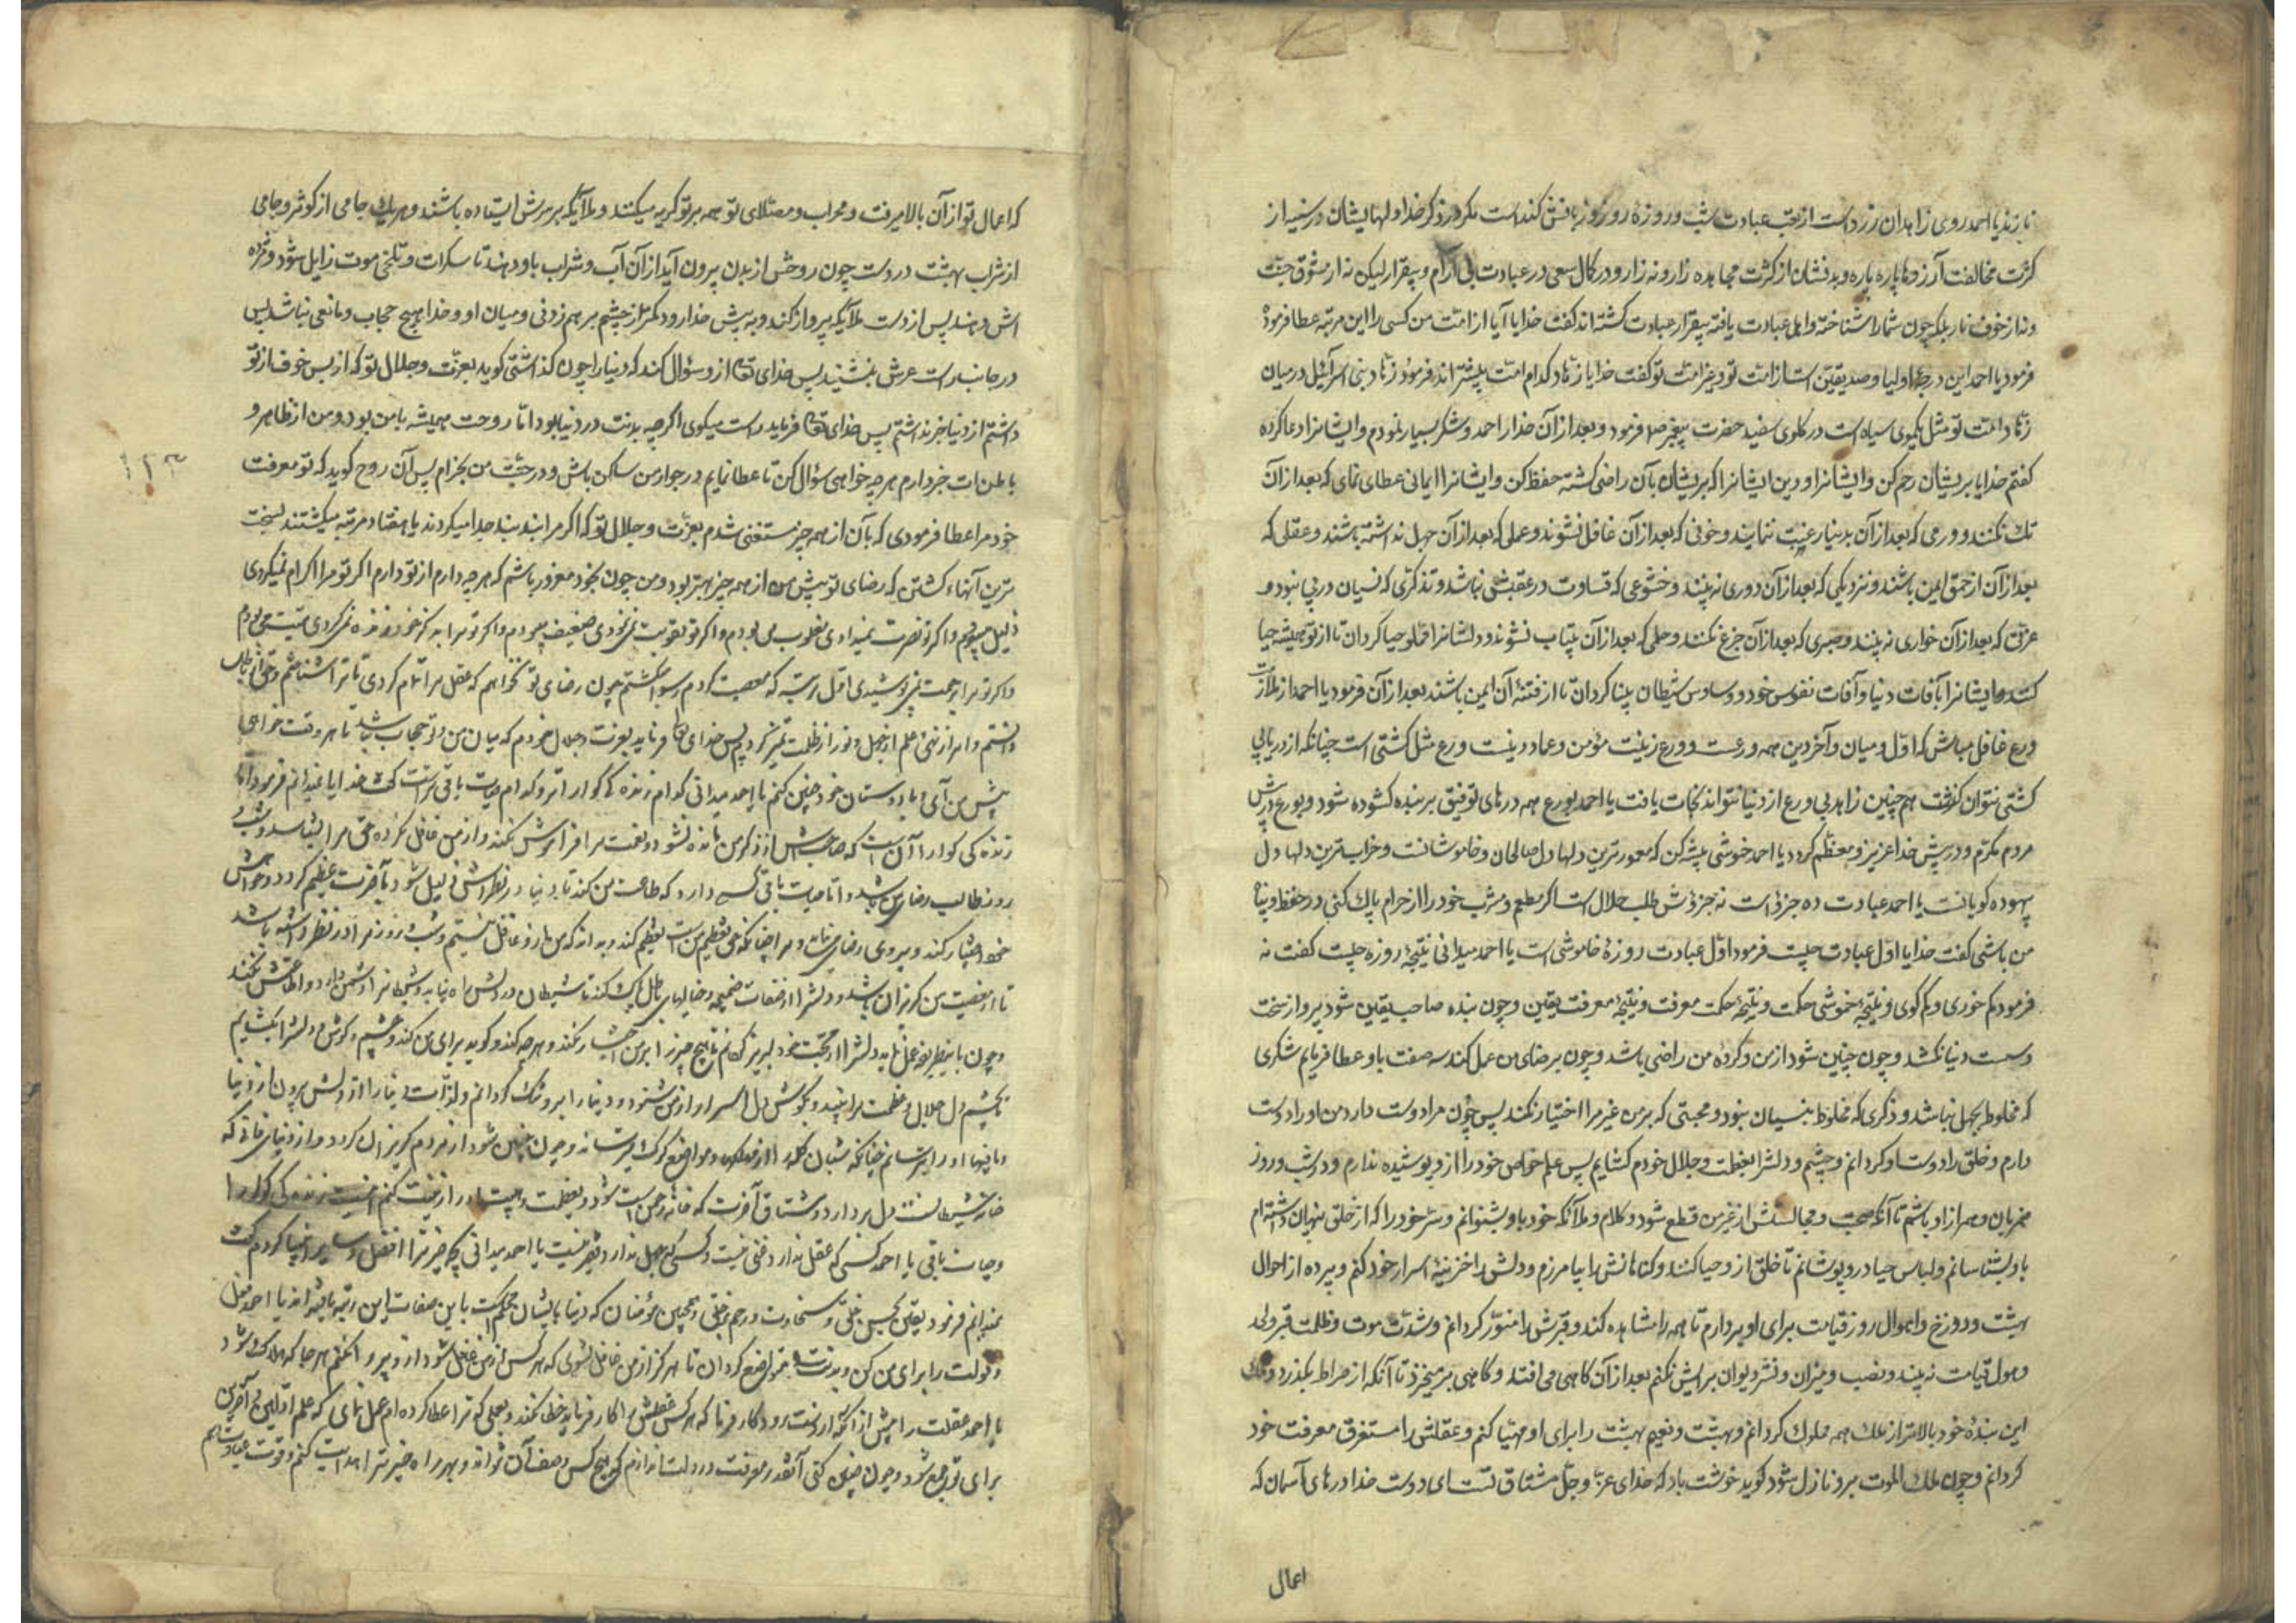 نازند یا احمد روی زاهدان زرد است از تعب عبادت شب و روزه روز و زبانش کند است مکر در ذکر خدا و لهایشان در سینه از
کثرت مخالفت آرزوها پاره پاره و بدنشان از کثرت مجاهده زار و نزار و در کمال سعی در عبادت بی آرام و بیقرار لیکن نه از شوق جنت
و نه از خوف نار بلکه چون شما را شناخته و اهل عبادت یافته بیقرار عبادت کشته اند کفت خدایا آیا از امت من کسی را این مرتبه عطا فرمودهٔ
فرمود یا احمد این درجهٔ اولیا و صدیقین است از امت تو و غیر امت تو کفت خدایا زهاد کدام امت بیشتر اند فرمود زهاد بنی اسرائیل در میان
زهاد امت تو مثل یکموی سیاه است در کاوی سفید حضرت پیغمبر ص فرمود و بعد از آن خدا را حمد و شکر بسیار نمودم و ایشانرا دعا کرده
کفتم خدایا بریشان رحم کن و ایشانرا و دین ایشانرا که بریشان بآن راضی کشته حفظ کن و ایشانرا ایمانی عطای نمای که بعد از آن
شک نکنند و ورعی که بعد از آن بدنیا رغبت ننمایند و خوفی که بعد از آن غافل نشوند و علمی که بعد از آن جهل نداشته باشند و عقلی که
بعد از آن از حمق ایمن باشند و نزدیکی که بعد از آن دوری نه بینند و خشوعی که قساوت در عقبش نباشد و تذکری که نسیان در پی نبود و
عزتی که بعد از آن خواری نه بینند و صبری که بعد از آن جزع نکنند و حلمی که بعد از آن بیتاب نشوند و دلشانرا مملو حیا کردان تا از تو همیشه حیا
کنند و ایشانرا بآفات دنیا و آفات نفوس خود و وساوس شیطان بینا کردان تا از فتنهٔ آن ایمن باشند بعد از آن فرمود یا احمد از ملازمت
ورع غافل مباش که اول و میان و آخر دین همه ورعست و ورع زینت مؤمن و عماد دینست ورع مثل کشتی است چنانکه از دریا بی
کشتی نتوان کذشت هم چنین زاهد بی ورع از دنیا نتواند نجات یافت یا احمد بورع همه درهای توفیق بر بنده کشوده شود و بورع در پیش
مردم مکرم و در پیش خدا عزیز و معظم کردد یا احمد خموشی پیشه کن که معمورترین دلها دل صالحان و خاموشانست و خراب ترین دلها دل
بیهوده کویانست یا احمد عبادت ده جزؤ است نه جزؤش طلب حلال است اکر مطعم و مشرب خود را از حرام پاک کنی در حفظ و پناه
من باشی کفت خدایا اول عبادت چیست فرمود اول عبادت روزهٔ خاموشی است یا احمد میدانی نتیجهٔ روزه چیست کفت نه
فرمود کم خوری و کم کوی و نتیجهٔ خموشی حکمت و نتیجهٔ حکمت معرفت و نتیجهٔ معرفت یقین و چون بنده صاحب یقین شود پروا از سخت
و سست دنیا نکشد و چون چنین شود از من و کردهٔ من راضی باشد و چون برضای من عمل کند سه صفت باو عطا فرمایم شکری
که مخلوط بجهل نباشد و ذکری که مخلوط بنسیان نبود و محبتی که بر من غیر مرا اختیار نکند پس چون مرا دوست دارد من او را دوست
دارم و خلق را دوست او کردانم و چشم و دلشرا بعظمت و جلال خودم کشایم پس علم خواص خود را از و پوشیده ندارم و در شب و روز
همزبان و همراز او باشم تا آنکه صحبت و مجالستش از غیر من قطع شود و کلام و ملآئکه خود باو بشنوانم و سر خود را که از خلق پنهان داشته ام
باو بشناسانم و لباس حیا در و پوشانم تا خلق از و حیا کنند و کناهانش را بیامرزم و دلش را خزینهٔ اسرار خود کنم و پرده از احوال
بهشت و دوزخ و اهوال روز قیامت برای او بردارم تا همه را مشاهده کند و قبرش را منور کردانم و شدت موت و ظلمت قبر و لحد
و هول قیامت نه بیند و نصب و میزان و نشر دیوان برایش نکنم بعد از آن کاهی می افتد و کاهی بر میخیزد تا آنکه از صراط بکذرد و ملک
این بندهٔ خود بالاتر از ملک همه ملوک کردانم و بهشت و نعیم بهشت را برای او مهیا کنم و عقلش را مستغرق معرفت خود
کردانم و چون ملک الموت برو نازل شود کوید خوشت باد که خدای عز و جل مشتاق تست ای دوست خدا درهای آسمان که
اعمال
که اعمال تو از آن بالا میرفت و محراب و مصلای تو همه بر تو کریه میکنند و ملآئکه بر سرش ایستاده باشند و هر یک جامی از کوثر و جامی
از شراب بهشت در دست چون روحش از بدن بیرون آید از آن آب و شراب باو دهند تا سکرات و تلخی موت زایل شود و مژده
اش دهند پس از دست ملآئکه پرواز کند و به پیش خدا رود کمتر از چشم بر هم زدنی و میان او و خدا هیچ حجاب و مانعی نباشد پس
در جانب راست عرش بنشیند پس خدای تعا از و سؤال کند که دنیا را چون کذاشتی کوید بعزت و جلال تو که از بس خوف از تو
داشتم از دنیا خبر نداشتم پس خدای تعا فرماید راست میکوی اکر چه بدنت در دنیا بود اما روحت همیشه با من بود و من از ظاهر و
باطن ات خبر دارم هر چه خواهی سؤال کن تا عطا نمایم در جوار من ساکن باش و در جنت من بخرام پس آن روح کوید که تو معرفت
۱۲۳
خود مرا عطا فرمودی که بآن از همه چیز مستغنی شدم بعزت و جلال تو که اکر مرا بند بند جدا میکردند یا هفتاد مرتبه میکشتند بسخت
ترین آنها، کشتن که رضای تو پیش من از همه چیز بهتر بود و من چون بخود مغرور باشم که هر چه دارم از تو دارم اکر تو مرا اکرام نمیکردی
ذلیل میبودم و اکر تو نصرت نمیدادی مغلوب می بودم و اکر تو تقویت نمی نمودی ضعیف میبودم و اکر تو مرا به ذکر خود زنده نمی کردی میت می بودم
و اکر تو مرا برحمت نمی پوشیدی اول مرتبه که معصیت کردم رسوا میکشتم چون رضای تو نخواهم که عقل مرا تمام کردی تا ترا شناختم و حق از باطل
دانستم و امر از نهی و علم از جهل و نور از ظلمت تمیز کردم پس خدای تعا فرماید بعزت و جلال خودم که میان من و تو حجاب نباشد تا هر وقت خواهی
پیش من آی و با دوستان خود چنین کنم یا احمد میدانی کدام زنده کی کواراتر و کدام حیات باقی تر است کفت خدایا نمیدانم فرمود اما
زنده کی کوارا آن است که صاحبش از ذکر من مانده نشود و نعمت مرا فراموش نکند و از من غافل نکردد و حق مرا بشناسد و شب و
روز طالب رضای من باشد و اما حیات باقی کسی دارد که طاعت من کند تا دنیا در نظرش ذلیل شود و آخرت عظیم کردد و خواهش
مرا اختیار کند و پیروی رضای من نماید و مرا چنانکه حق تعظیم من است تعظیم کند و بداند که من باز و غافل نیستم و شب و روز مرا در نظر داشته باشد
تا از معصیت من کریزان باشد و دلشرا از صفات ذمیمه و خیالهای باطل پاک کند تا شیطان در دلش راه نیابد و شیطانرا دشمن دارد و اطاعتش نکند
و چون باینطریق عمل نماید دلشرا از محبت خود لبریز کردانم تا هیچ چیز را بر من اختیار نکند و هر چه کند و کوید برای من کند و چشم و کوش دلشرا بکشایم
تا بچشم دل جلال و عظمت مرا ببیند و بکوش دل اسرار از من شنود و دنیا را برو تنک کردانم و لذات دنیا را از دلش بیرون از دنیا
و مافیها او را بترسانم چنانکه شبان کله را از مواضع کرک میترساند و چون چنین شود از مردم کریزان کردد و از دنیای فانی که
خانهٔ شیطانست دل بردارد و مشتاق آخرت که خانهٔ رحمن است شود و بعظمت و هیبت او را زینت کنم اینست زنده کی کوارا
و حیات باقی یا احمد کسی که عقل ندارد غنی نیست و کسی که جهل ندارد فقیر نیست یا احمد میدانی بچه چیز ترا افضل و سایر انبیا کردم کفت
نمیدانم فرمود بیقین و حسن خلق و سخاوت و رحم بر خلق و همچنین مؤمنان که دنیا بایشان محکمست باین صفات باین رتبه یافته اند یا احمد دل
و قولت را برای من کن و بدنت متواضع کردان تا هرکز از من غافل نشوی که هر کس از من غافل شود از و پروا نکنم هر جا که هلاک شود
یا احمد عقلت را پیش از آنکه از دستت برود کار فرما که هر کس عقلش را کار فرماید خطا نکند و بعلمی که ترا عطا کرده ام عمل نمای که علم اولین و آخرین
برای تو جمع شود و چون چنین کنی آنقدر معرفت در دلت اندازم که هیچ کس وصف آن نتواند و بهر راه خیر ترا هدایت کنم و قوت عبادت دهم